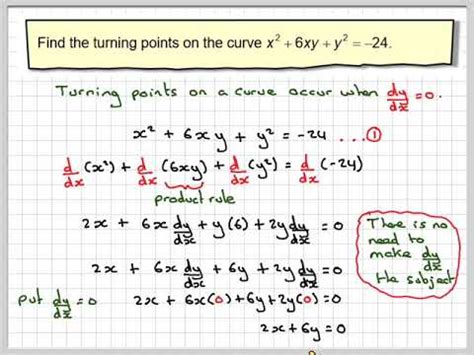 Find the turning points on the curve x² + 6xy + y² = –24.
Turning points on a curve occur when dy/dx = 0.
x² + 6xy + y² = -24 ... ①
d/dx (x²) + d/dx (6xy) + d/dx (y²) = d/dx (-24)
product rule
2x + 6x dy/dx + y(6) + 2y dy/dx = 0
There is no
need to
make dy/dx
the subject
2x + 6x dy/dx + 6y + 2y dy/dx = 0
put dy/dx = 0 2x + 6x(0) + 6y + 2y(0) = 0
2x + 6y = 0